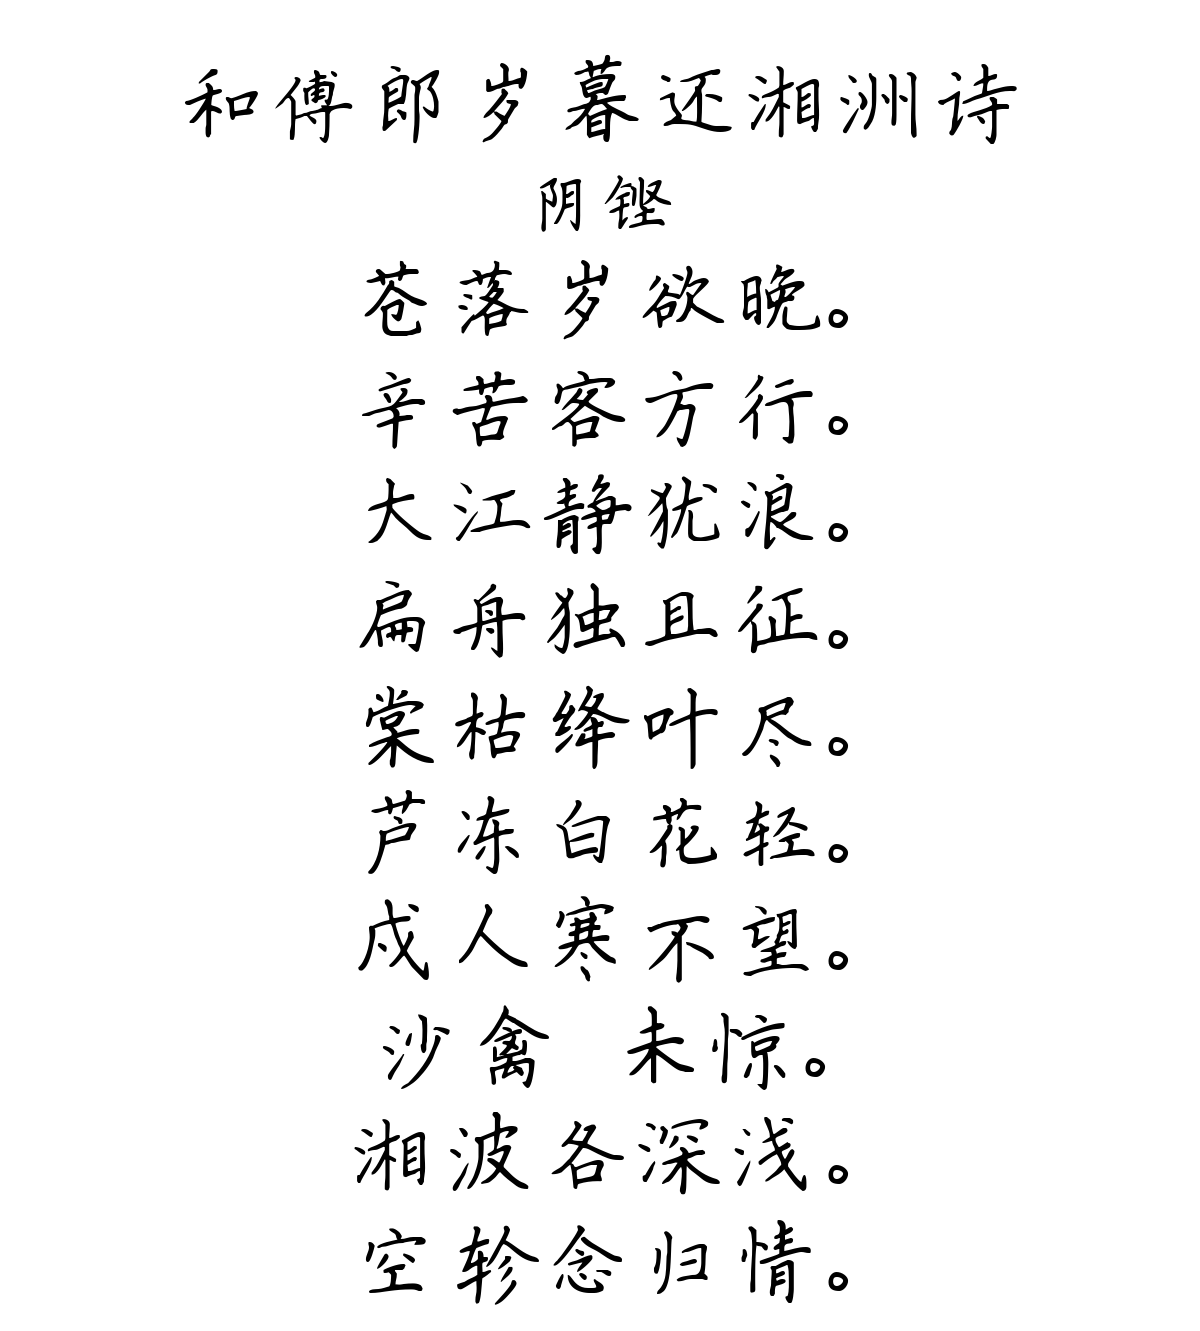 和傅郎岁暮还湘洲诗
阴铿
苍落岁欲晚。
辛苦客方行。
大江静犹浪。
扁舟独且征。
棠枯绛叶尽。
芦冻白花轻。
戍人寒不望。
沙禽 未惊。
湘波各深浅。
空轸念归情。